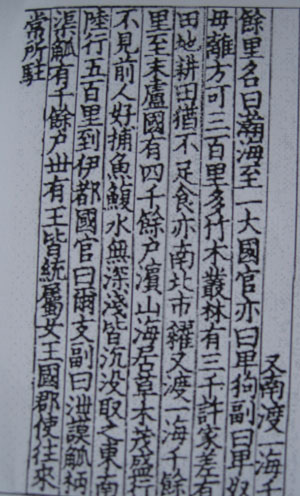 又南渡一海千
餘里名曰瀚海至一大國官亦曰卑狗副曰卑奴
毋離方可三百里多竹木叢林有三千許家差有
田地耕田猶不足食亦南北市糴又渡一海千餘
里至末盧國有四千餘戶濱山海居草木茂盛行
不見前人好捕魚鰒水無深淺皆沉没取之東南
陸行五百里到伊都國官曰爾支副曰泄謨觚柄
渠觚有千餘戶丗有王皆統屬女王國郡使往來
常所駐